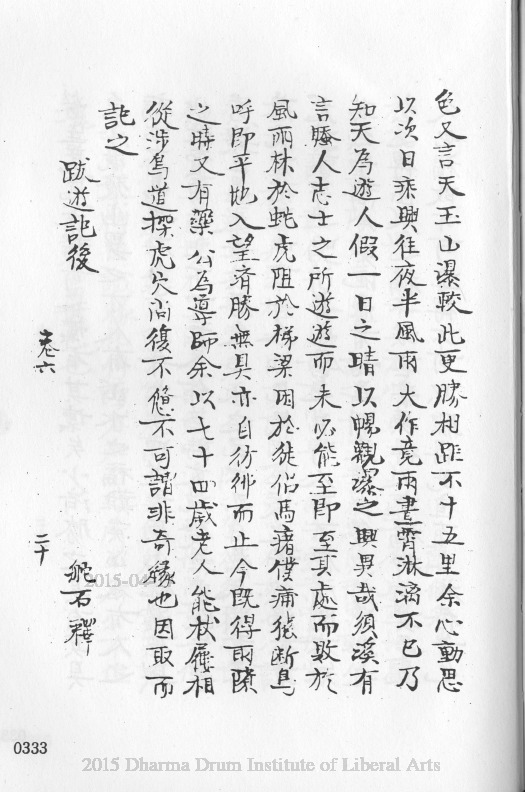 色又言天玉山瀑較此更勝相距不十五里余心動思
以次日乘興往夜半風雨大作竟兩晝霄淋漓不已乃
知天為遊人假一日之晴以暢觀瀑之興異哉須溪有
言騷人志士之所遊遊而未必能至即至其處而敗於
風雨林於蛇虎阻於梯梁困於徒侶馬瘏僕痡猿斷鳥
呼即平地入望濟勝無具亦自彷彿而止今既得雨隙
之晴又有藥公為導師余以七十四歲老人能杖屨相
從涉鳥道探虎穴尚復不憊不可謂非奇緣也因取而
記之
跋遊記後
卷六
二十
石禪
0333
2015-04
2015 Dharma Drum Institute of Liberal Arts